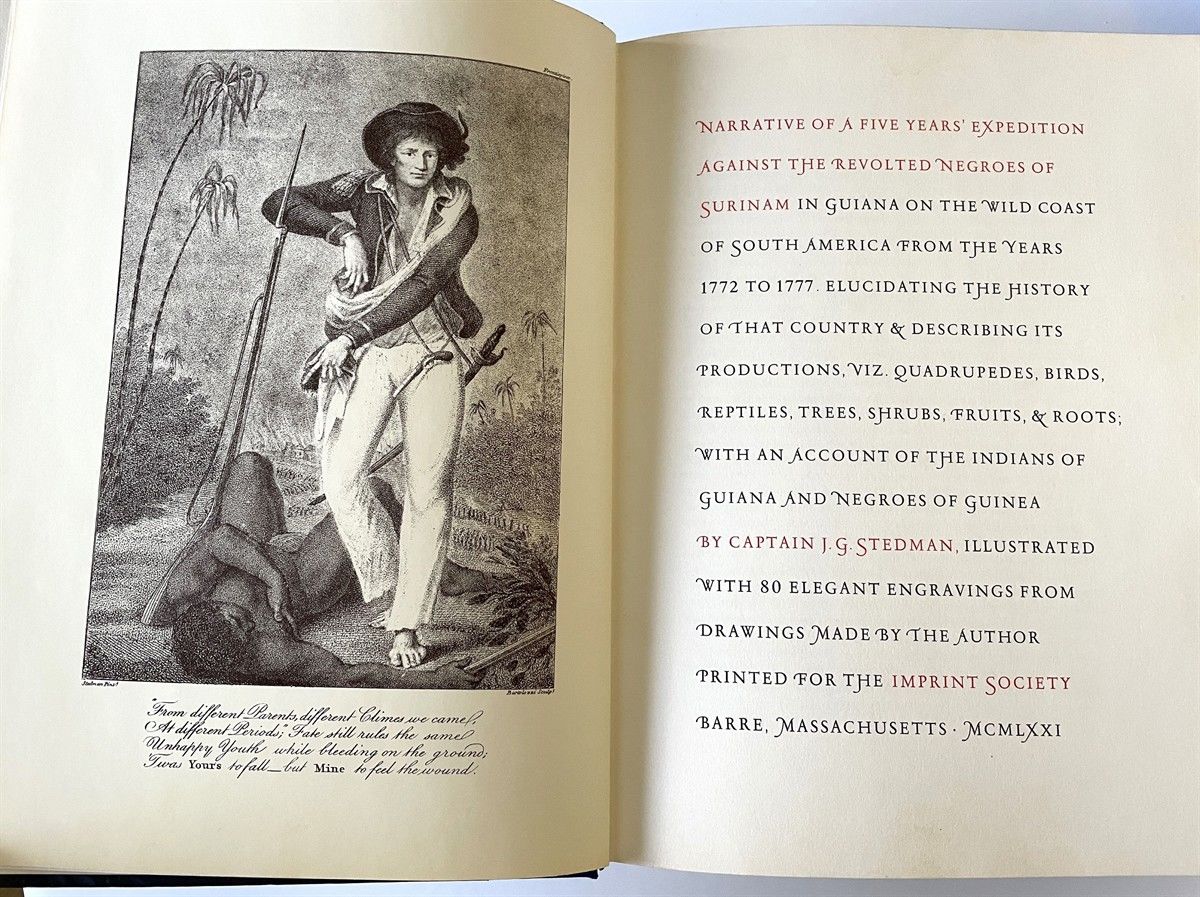 Frontispiece
Stedman Pinxt
Bartolozzi Sculpt
"From different Parents, different Climes we came,
At different Periods"; Fate still rules the same.
Unhappy Youth while bleeding on the ground;
'Twas Yours to fall—but Mine to feel the wound.
NARRATIVE OF A FIVE YEARS' EXPEDITION
AGAINST THE REVOLTED NEGROES OF
SURINAM IN GUIANA ON THE WILD COAST
OF SOUTH AMERICA FROM THE YEARS
1772 TO 1777. ELUCIDATING THE HISTORY
OF THAT COUNTRY & DESCRIBING ITS
PRODUCTIONS, VIZ. QUADRUPEDES, BIRDS,
REPTILES, TREES, SHRUBS, FRUITS, & ROOTS;
WITH AN ACCOUNT OF THE INDIANS OF
GUIANA AND NEGROES OF GUINEA
BY CAPTAIN J. G. STEDMAN, ILLUSTRATED
WITH 80 ELEGANT ENGRAVINGS FROM
DRAWINGS MADE BY THE AUTHOR
PRINTED FOR THE IMPRINT SOCIETY
BARRE, MASSACHUSETTS · MCMLXXI